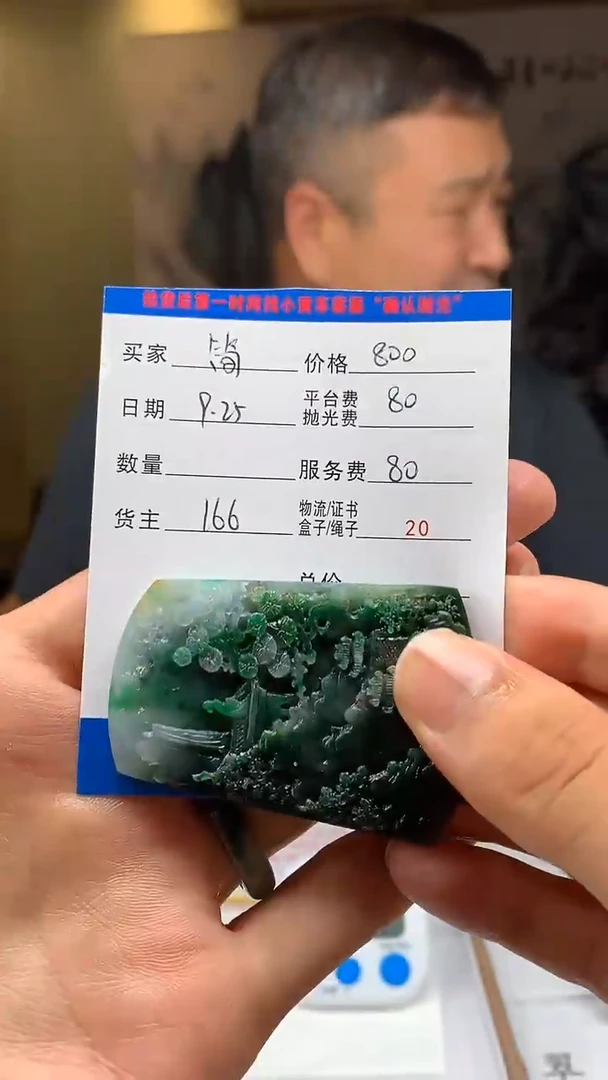 买家 简 价格 800
日期 9.25 平台费 80
抛光费
数量 服务费 80
货主 166 物流/证书
盒子/绳子 20
总价